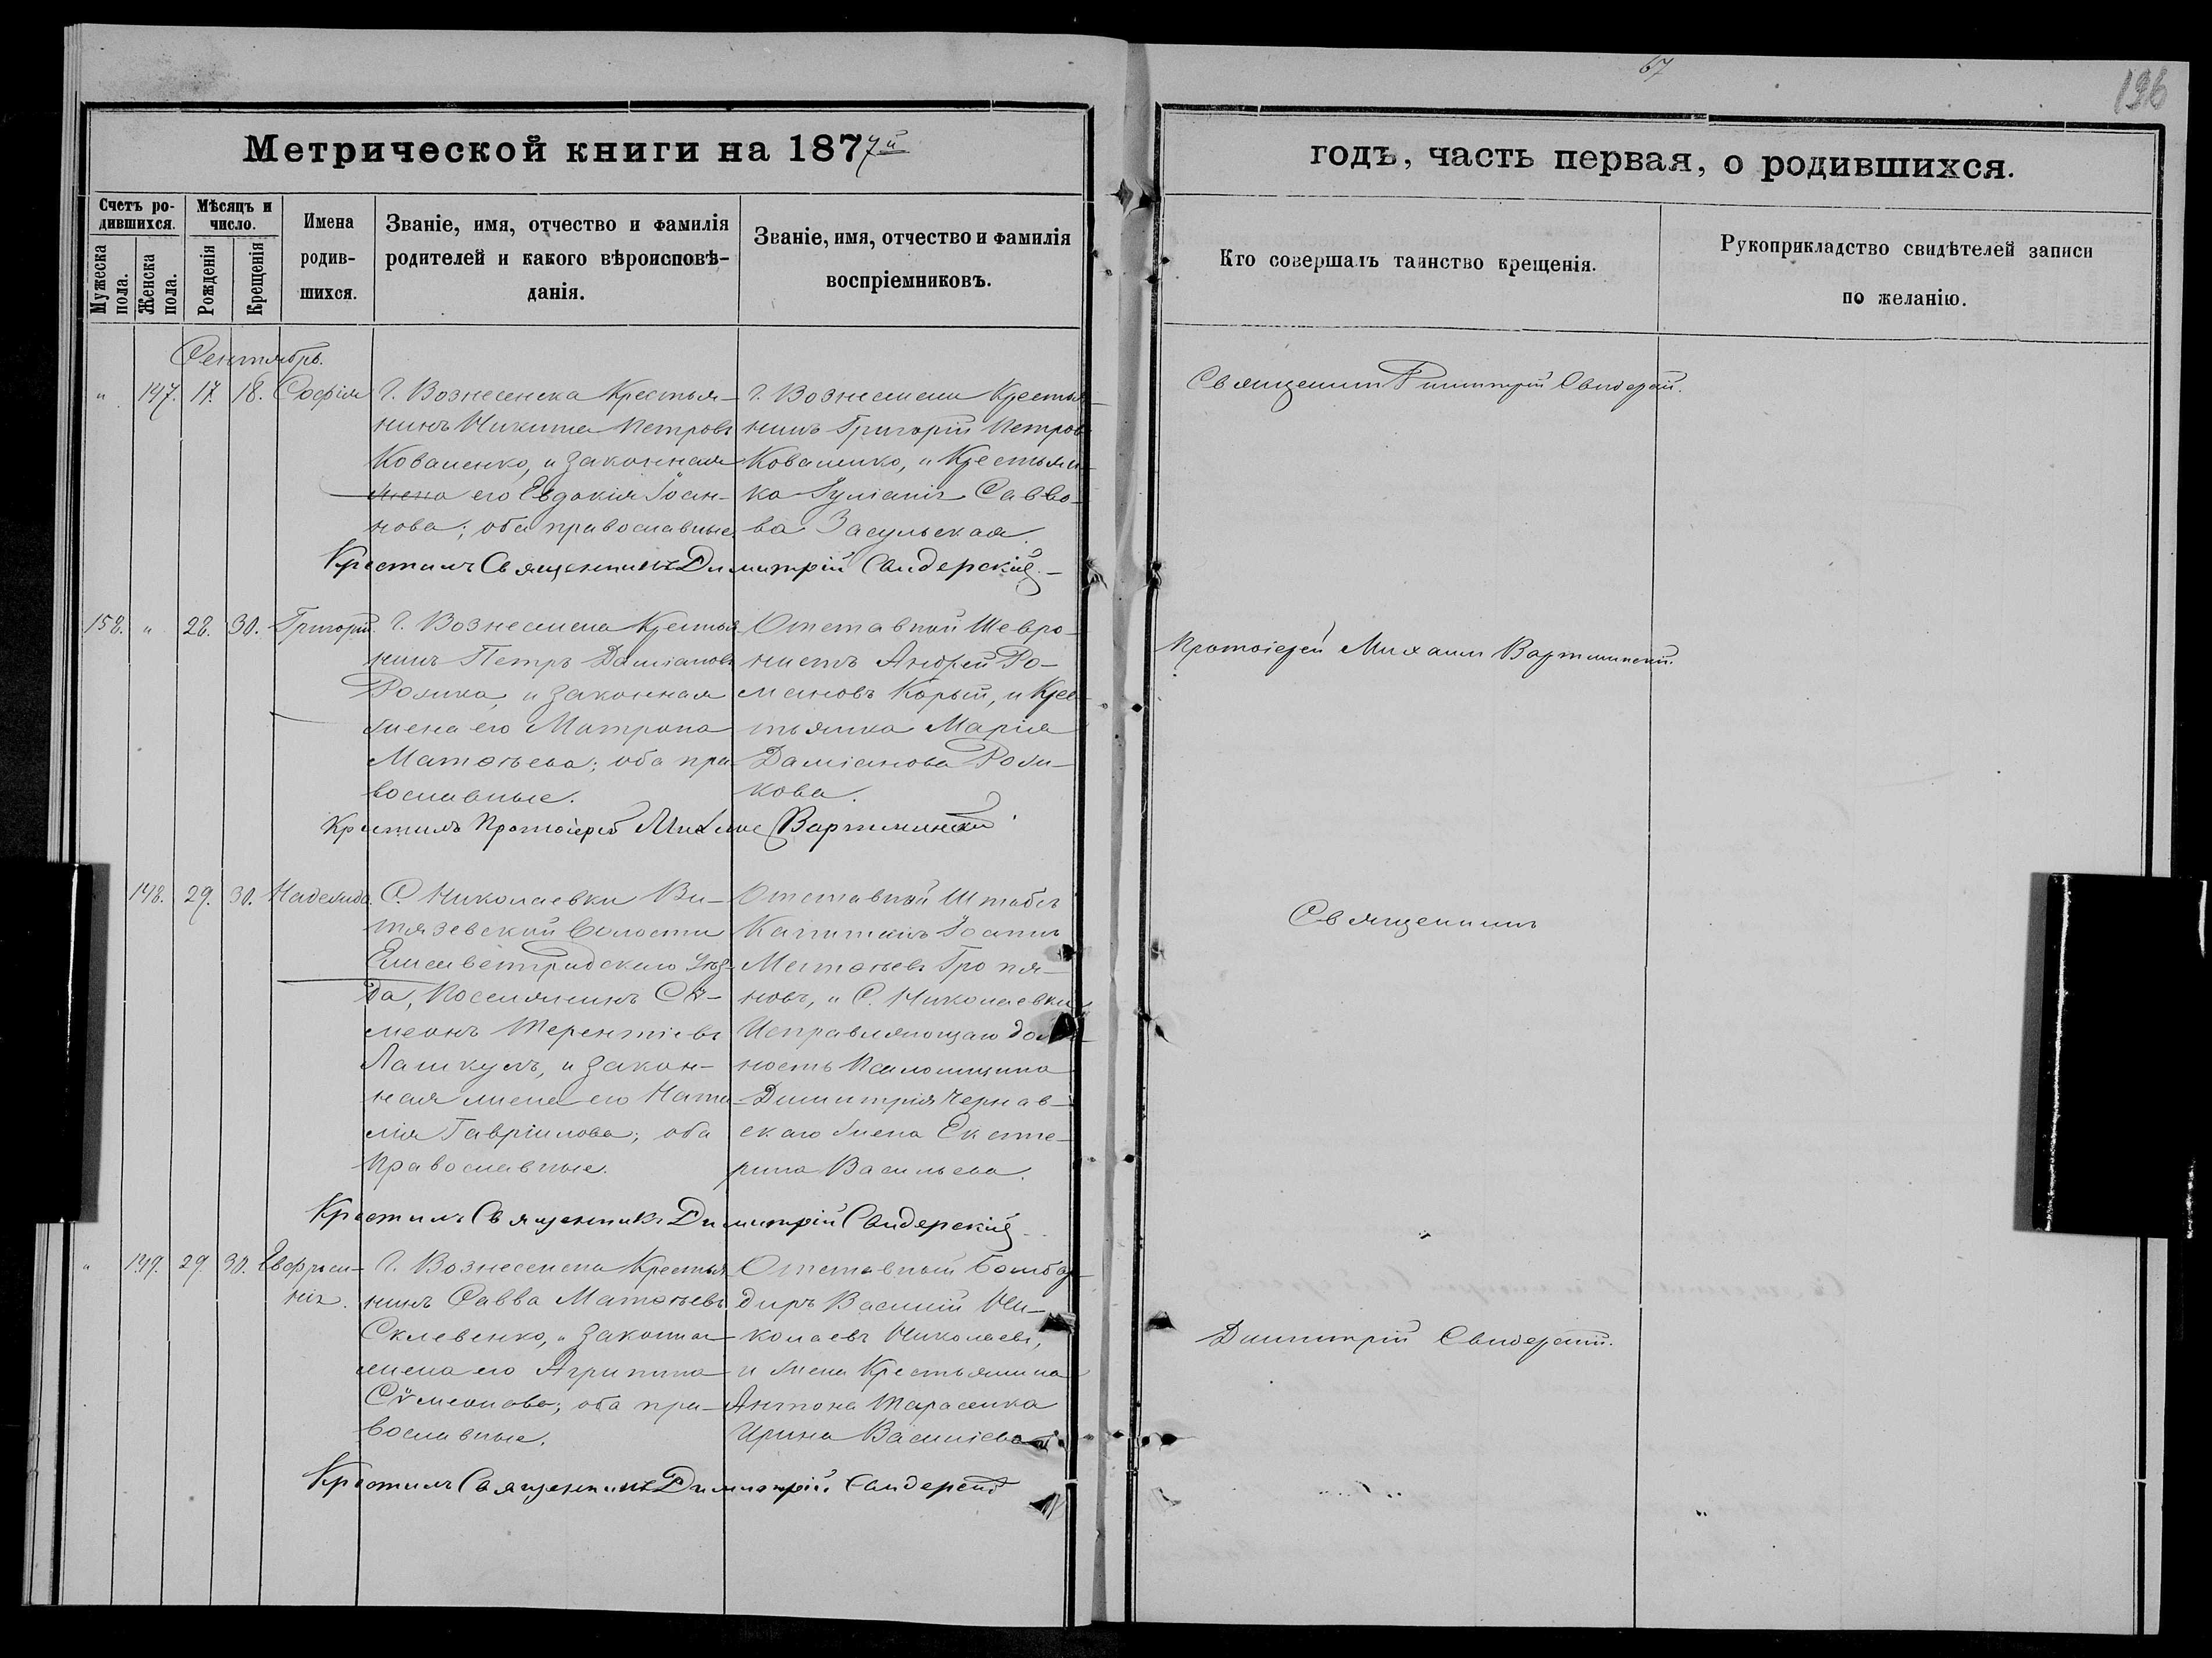 67
196
Метрической книги на 1877й
годъ, часть первая, о родившихся.
Счетъ ро-
дившихся.
Мужеска
пола.
Женска
пола.
Мѣсяцъ и
число.
Рожденія
Крещенія
Имена
родив-
шихся.
Званіе, имя, отчество и фамилія
родителей и какого вѣроисповѣ-
данія.
Званіе, имя, отчество и фамилія
воспріемниковъ.
Кто совершалъ таинство крещенія.
Рукоприкладство свидѣтелей записи
по желанію.
Сентябрь.
" 147. 17. 18. Софія
Г. Вознесенска Крестья-
нинъ Никита Петровъ
Коваленко, и законная
жена его Евдокія Іоан-
нова; оба православные.
Г. Вознесенска Крестья-
нинъ Григорій Петровъ
Коваленко, и Крестьян-
ка Іуліанія Савво-
ва Засульская.
Священникъ Димитрій Свидерскій.
Крестилъ Священникъ Димитрій Свидерскій.
158. " 28. 30. Григорій
Г. Вознесенска Крестья-
нинъ Петръ Даміановъ
и законная
жена его Матрона
Матѳѣева; оба пра-
вославные.
Отставной Шевро-
нистъ Андрей Ро-
мановъ Корый, и Крес-
тьянка Марія
Даміанова
кова.
Протоіерей Михаилъ Вартминскій.
Крестилъ Протоіерей Михаилъ Вартминскій
148. 29. 30. Надежда
С. Николаевки Ви-
тязевской Волости
Елисаветградскаго Уѣз-
да, Поселянинъ Сѵ-
меонъ Терентіевъ
Лашкулъ, и закон-
ная жена его Ната-
лія Гавріилова; оба
Православные.
Отставной Штабсъ
Капитанъ Іоаннъ
Матѳѣевъ
новъ, и С. Николаевки
Исправляющаго долж-
ность Псаломщика
Димитрія Чернав-
скаго жена Екате-
рина Васильева.
Священникъ
Крестилъ Священникъ Димитрій Свидерскій
" 149. 29. 30. Евфроси-
нія.
Г. Вознесенска Крестья-
нинъ Савва Матѳѣевъ
Склевенко, и законная
жена его Агрипина
Сѵмеонова; оба пра-
вославные.
Отставный Бомбар-
диръ Василій Ни-
колаевъ Николаевъ,
и жена Крестьянина
Антона Тарасенка
Ирина Василіева
Димитрій Свидерскій.
Крестилъ Священникъ Димитрій Свидерскій